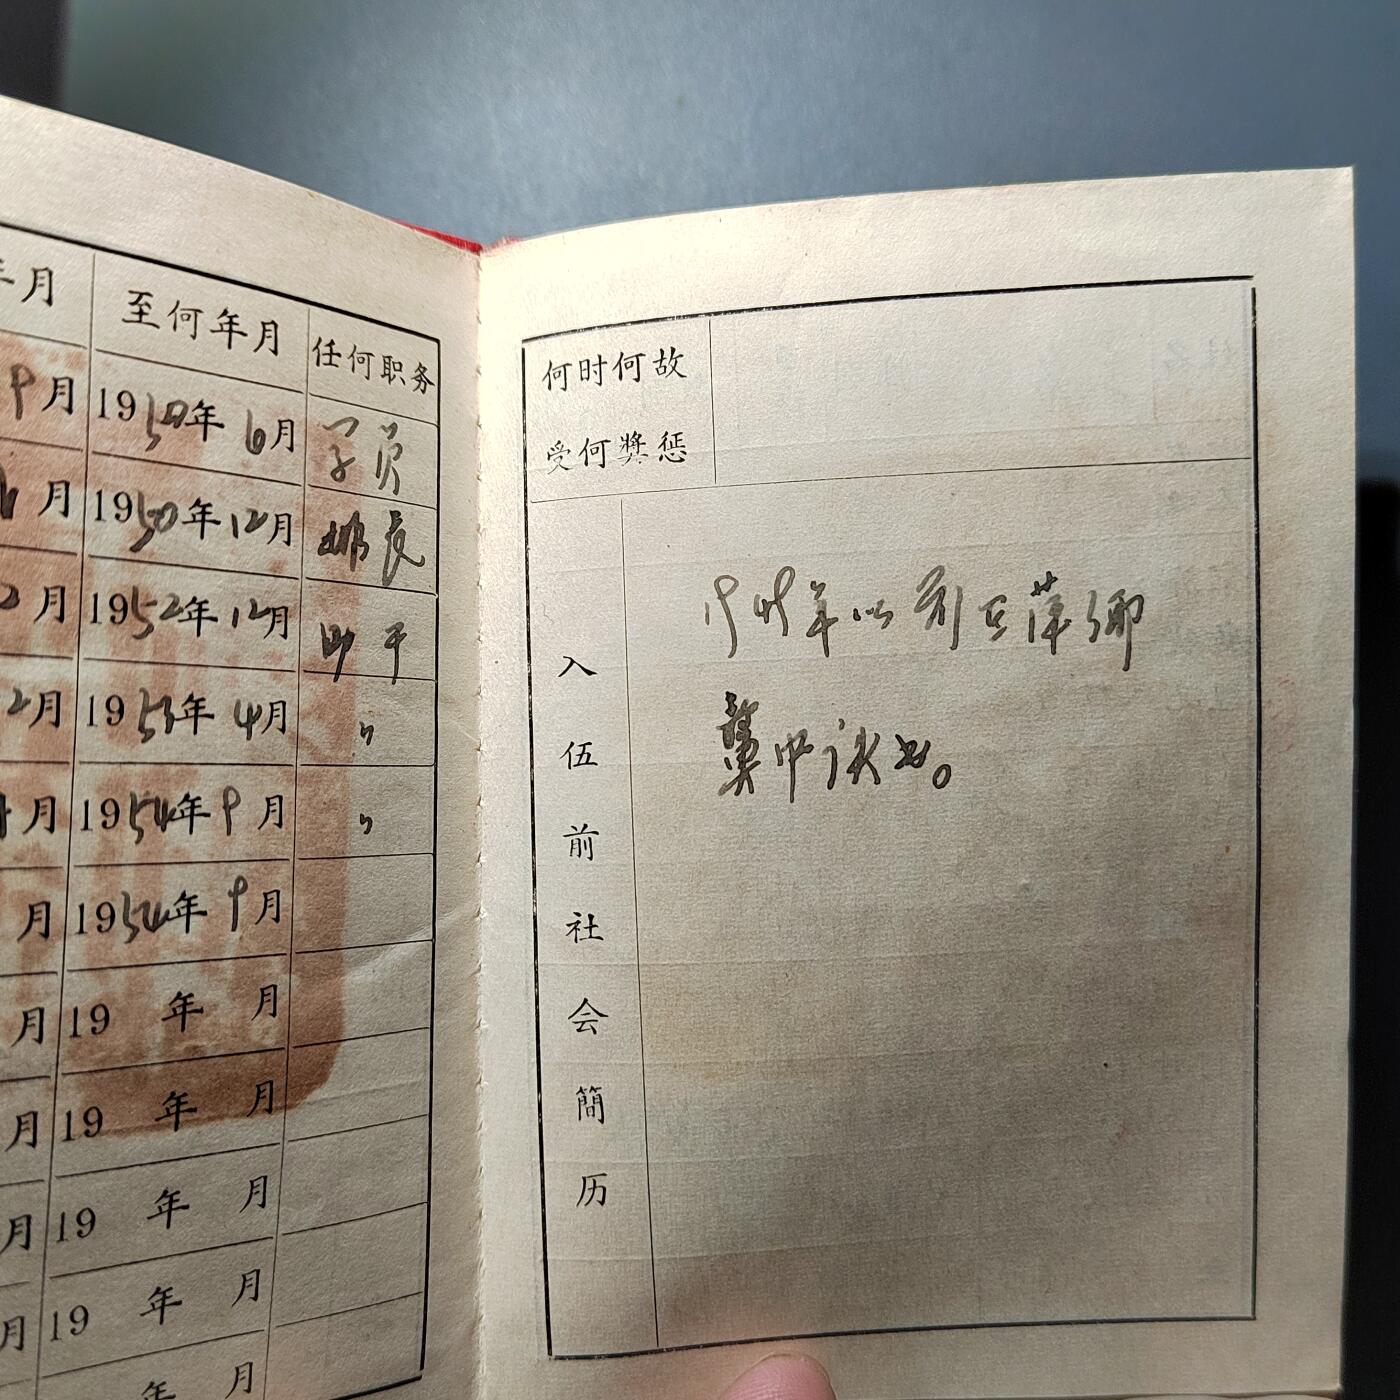 年月 至何年月 任何职务
9月 1950年6月 学员
月 1950年12月 排长
2月 1952年12月 助干
2月 1953年4月 〃
月 1954年9月 〃
月 1954年9月
月 19 年 月
月 19 年 月
月 19 年 月
月 19 年 月
年 月
何时何故
受何奖惩
入伍前社会简历
1949年以前在萍乡
冀中读书。